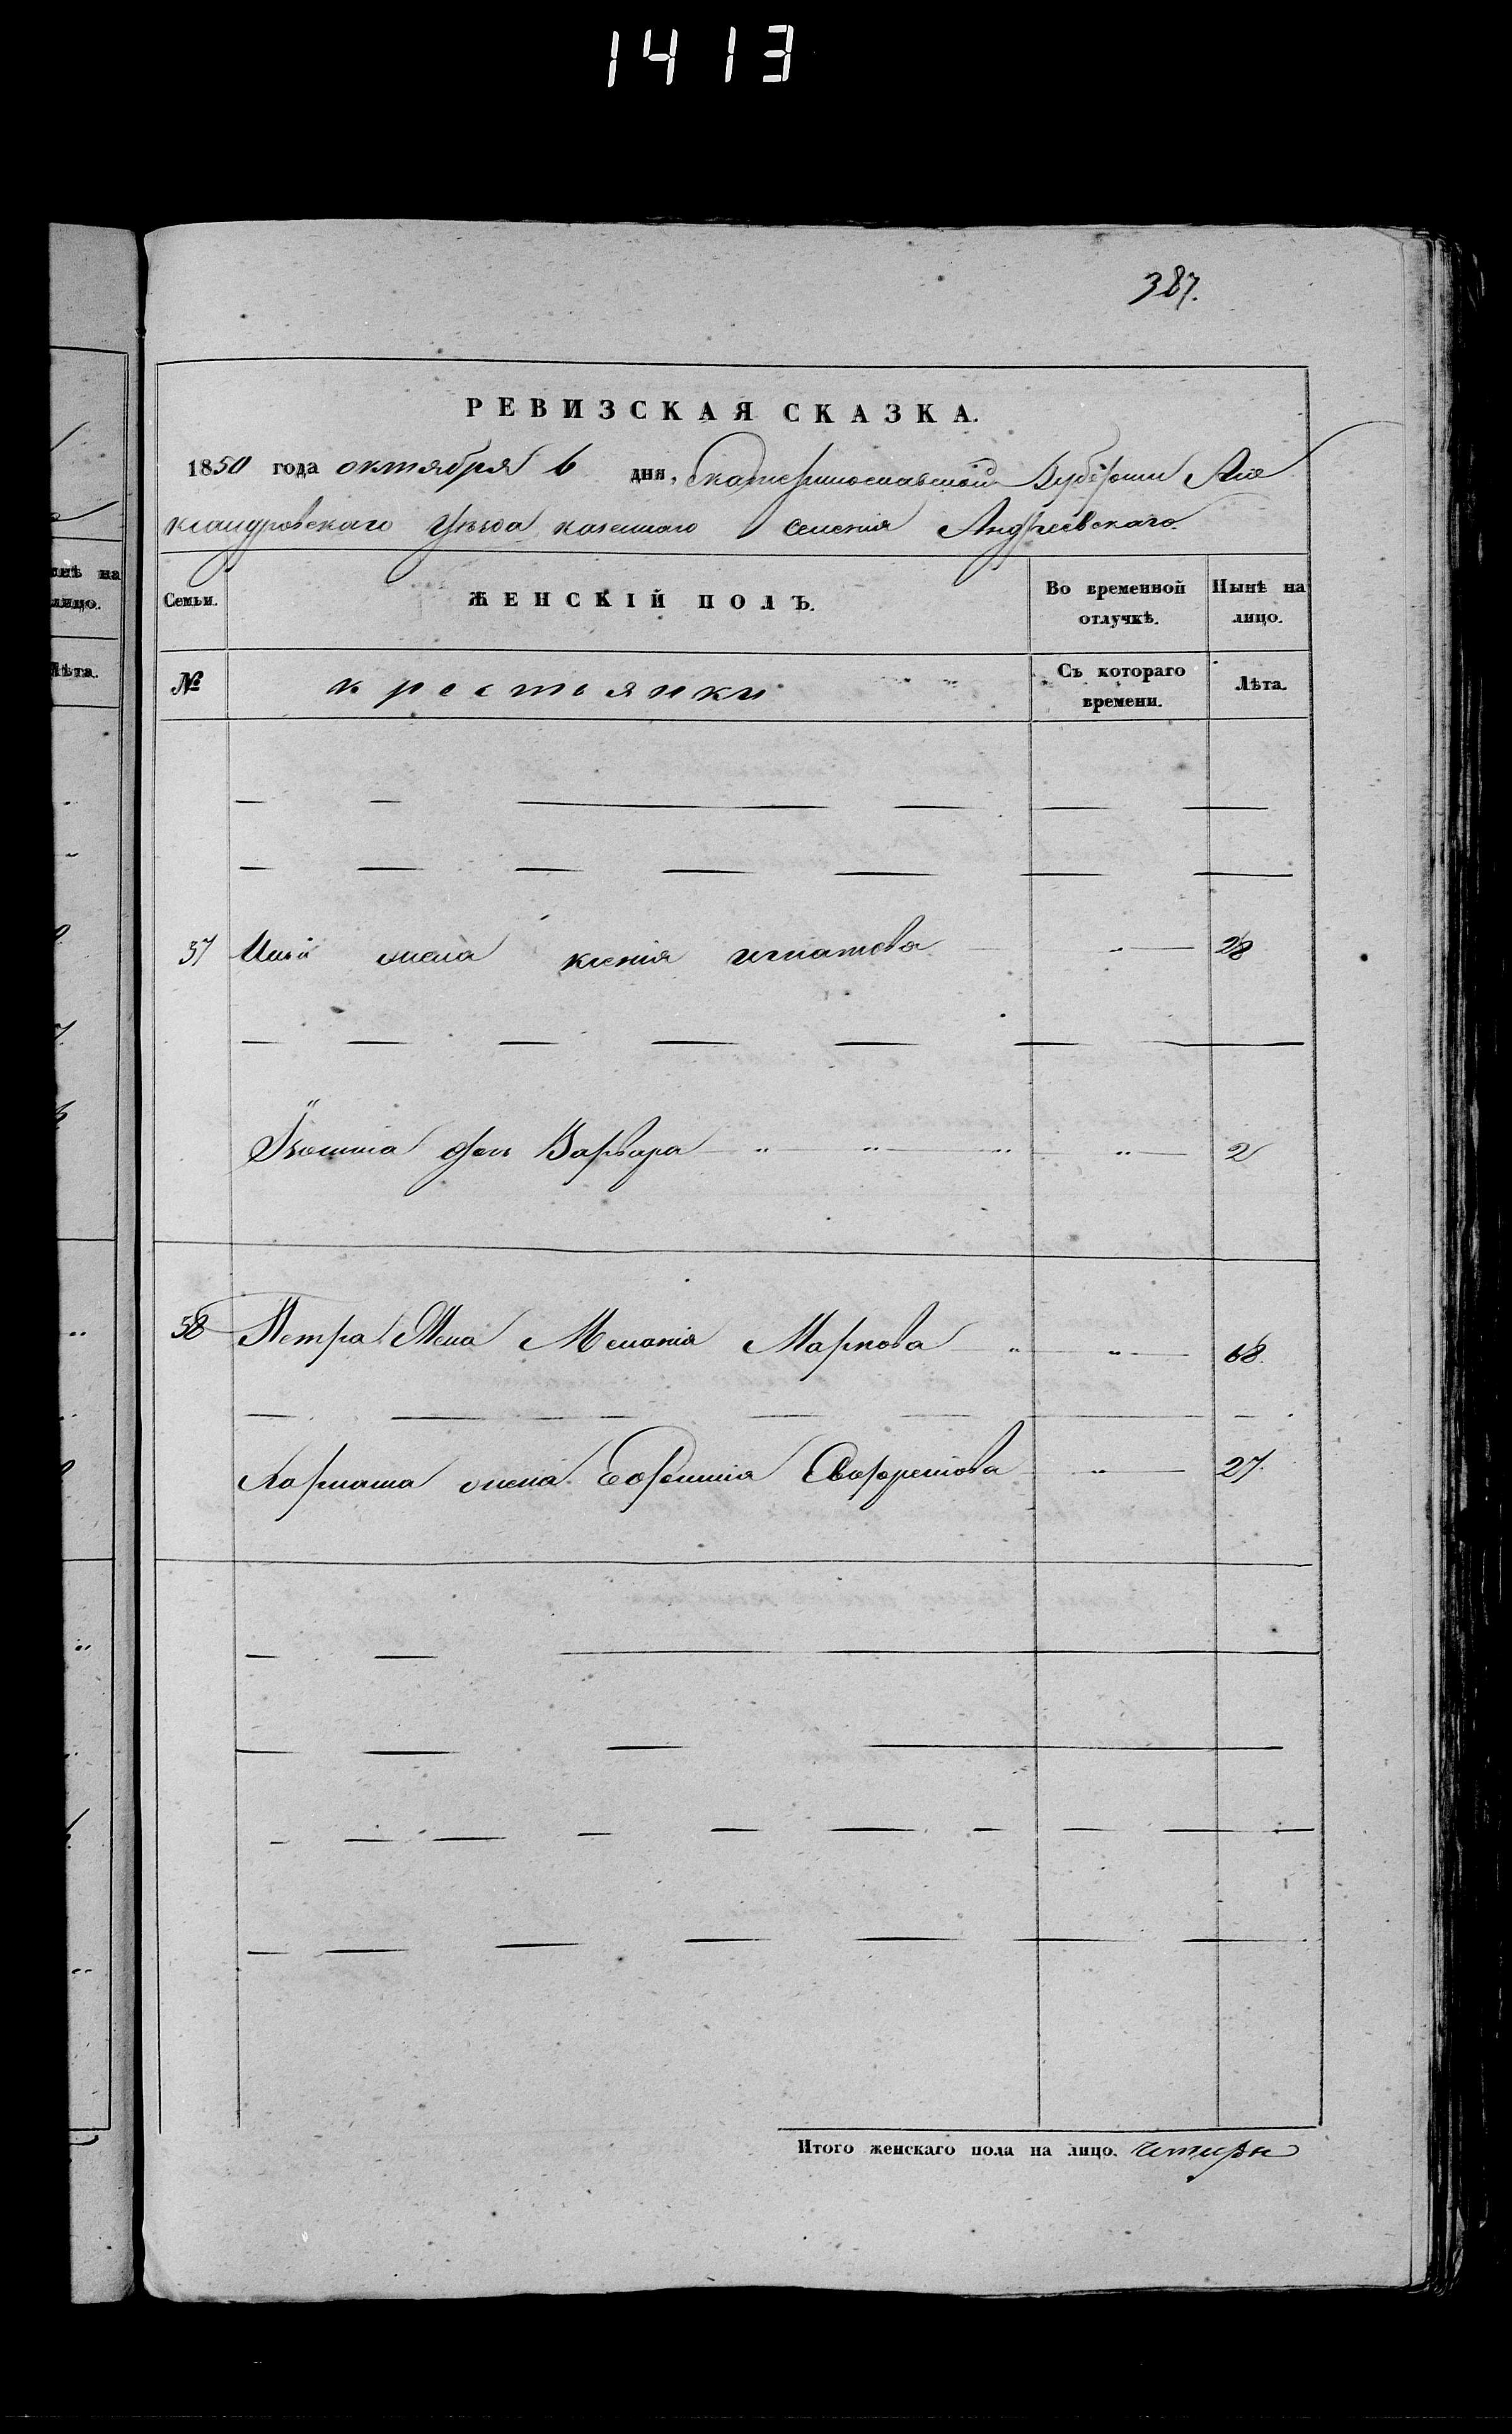 1413
387.
РЕВИЗСКАЯ СКАЗКА.
1850 года октября 6 дня, Екатеринославской Губернии Але
ксандровского Уѣзда казенного селения Андреевскаго.
Семьи. ЖЕНСКІЙ ПОЛЪ. Во временной отлучкѣ. Нынѣ на лицо.
№ крестьянки Съ котораго времени. Лѣта.
37 жена ксенія игнатова " 28
дочь Варвара " " " " 2
58 Петра Жена Меланія Маркова " " 68.
жена Евфимія " 27.
Итого женскаго пола на лицо. четыре
нѣ на
лицо.
Лѣта.